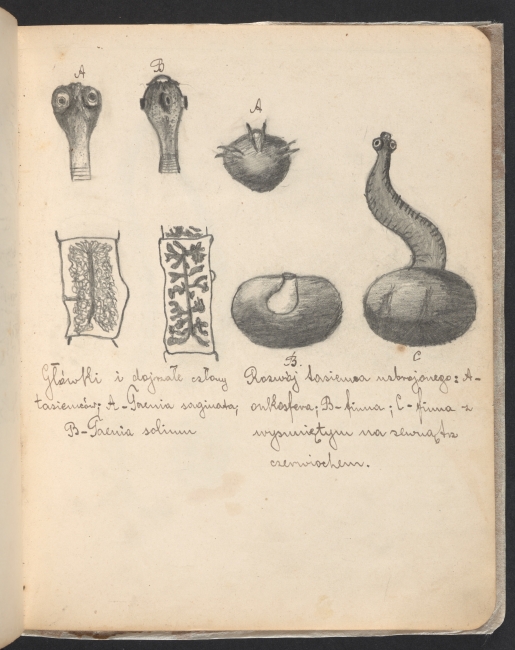 A
B
A
B.
C
Główki i dojrzałe człony
tasiemców; A-Taenia saginata;
B-Taenia solium
Rozwój tasiemca uzbrojonego: A-
onkosfera; B-finna; C-finna z
wysuniętym na zewnątrz
czerwiochem.